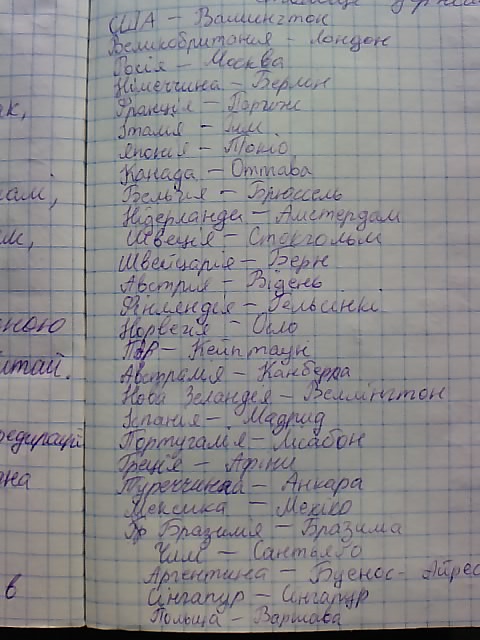 США – Вашингтон
Великобританія – Лондон
Росія – Москва
Німеччина – Берлін
Франція – Париж
Італія – Рим
Японія – Токіо
Канада – Оттава
Бельгія – Брюссель
Нідерланди – Амстердам
Швеція – Стокгольм
Швейцарія – Берн
Австрия – Відень
Фінляндія – Гельсінкі
Норвегія – Осло
ПАР – Кейптаун
Австралія – Канберра
Нова Зеландія – Веллінгтон
Іспанія – Мадрид
Португалія – Лісабон
Греція – Афіни
Туреччина – Анкара
Мексика – Мехіко
Бразилія – Бразиліа
Чилі – Сантьяго
Аргентина – Буенос-Айрес
Сінгапур – Сінгапур
Польща – Варшава